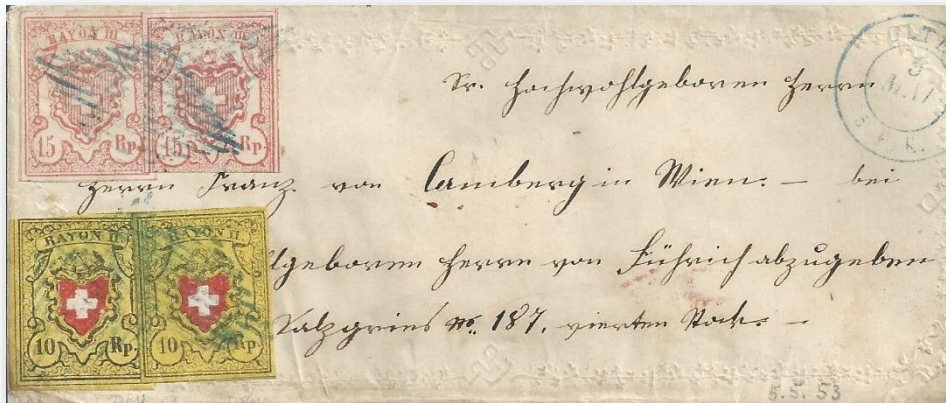 RAYON III RAYON III
15 Rp. 15 Rp.
RAYON II RAYON II
10 Rp. 10 Rp.
OLT
5
MAI
Sr. Hochwohlgeboren Herrn
Herrn Franz von Camberg in Wien. — bei
lgeboren Herrn von Führich abzugeben
Salzgries No. 187. vierten Stock. —
5.5.53